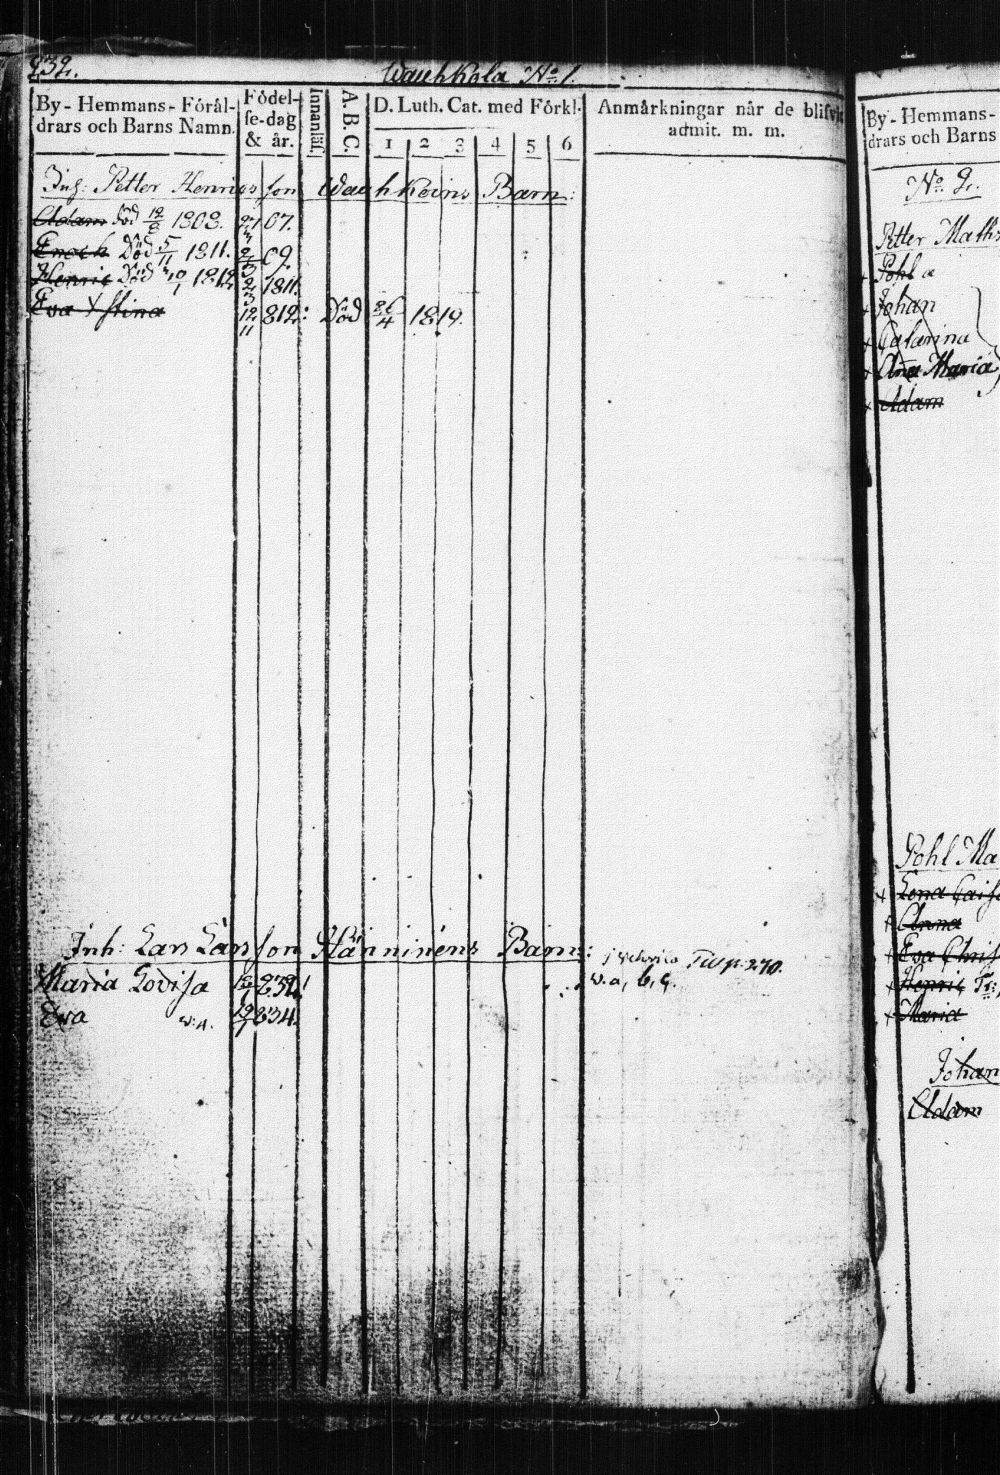 232.
Wauhkola No 1.
By-Hemmans-Förål-
drars och Barns Namn.
Födel-
se-dag
& år.
Innanläs.
A. B. C.
D. Luth. Cat. med Förkl.
1 2 3 4 5 6
Anmårkningar når de blifvit
admit. m. m.
Inh: Petter Henricsson Wauhkoins Barn:
Adam död 12/8 1808. 07.
Enoch Död 5/11 1811. 2/3 09.
Henric Död 1812 2/3 1811.
Eva Stina 12/11 812: Död 26/4 1819.
Inh: Lars Larsson Hänninens Barn:
Maria Lovisa 832! w. a, b, c.
Eva w: a. 19/1 834.
By-Hemmans-
drars och Barns
No 2.
Petter Maths
Pohl a
Johan
Catarina
Ana Maria
Adam
Pohl Ma
Lena Cais
Anna
Eva Chris
Henric
Maria
Johan
Adam